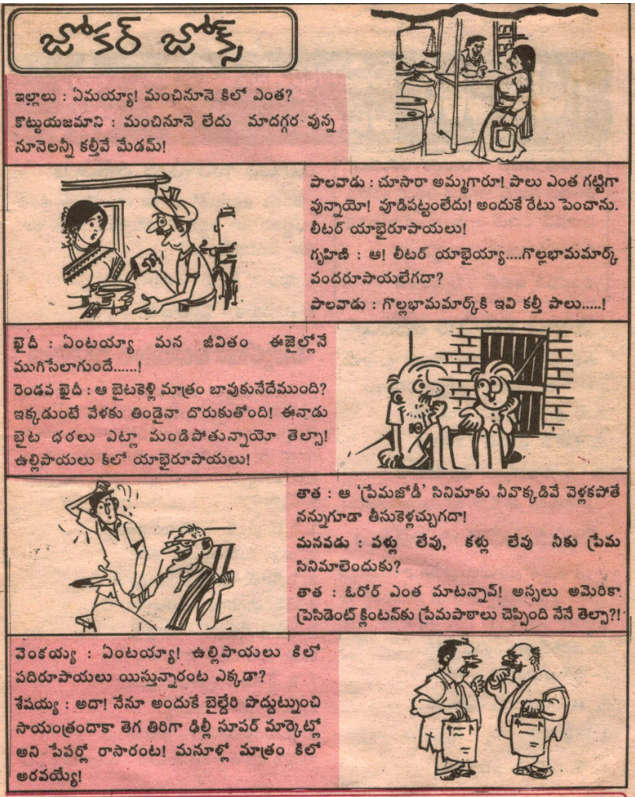 జోకర్ జోక్స్
ఇల్లాలు : ఏమయ్యా! మంచినూనె కిలో ఎంత?
కొట్టుయజమాని : మంచినూనె లేదు మాదగ్గర వున్న
నూనెలన్నీ కల్తీవే మేడమ్!
పాలవాడు : చూసారా అమ్మగారూ! పాలు ఎంత గట్టిగా
వున్నాయో! వూడిపట్టంలేదు! అందుకే రేటు పెంచాను.
లీటర్ యాభైరూపాయలు!
గృహిణి : ఆ! లీటర్ యాభైయ్యా....గొల్లభామమార్క్
వందరూపాయలేగదా?
పాలవాడు : గొల్లభామమార్క్‌కి ఇవి కల్తీ పాలు.....!
ఖైదీ : ఏంటయ్యా మన జీవితం ఈజైల్లోనే
ముగిసేలాగుందే......!
రెండవ ఖైదీ : ఆ బైటకెళ్లి మాత్రం బావుకునేదేముంది?
ఇక్కడుంటే వేళకు తిండైనా దొరుకుతోంది! ఈనాడు
బైట ధరలు ఎట్లా మండిపోతున్నాయో తెల్సా!
ఉల్లిపాయలు కిలో యాభైరూపాయలు!
తాత : ఆ 'ప్రేమజోడీ' సినిమాకు నీవొక్కడివే వెళ్లకపోతే
నన్నుగూడా తీసుకెళ్లచ్చుగదా!
మనవడు : పళ్లు లేవు, కళ్లు లేవు నీకు ప్రేమ
సినిమాలెందుకు?
తాత : ఓరోర్ ఎంత మాటన్నావ్! అస్సలు అమెరికా
ప్రెసిడెంట్ క్లింటన్‌కు ప్రేమపాఠాలు చెప్పింది నేనే తెల్సా?!
వెంకయ్య : ఏంటయ్యా! ఉల్లిపాయలు కిలో
పదిరూపాయలు యిస్తున్నారంట ఎక్కడా?
శేషయ్య : అదా! నేనూ అందుకే బైల్దేరి పొద్దుట్నుంచి
సాయంత్రందాకా తెగ తిరిగా ఢిల్లీ సూపర్ మార్కెట్లో
అని పేపర్లో రాసారంట! మనూళ్లో మాత్రం కిలో
అరవయ్యే!